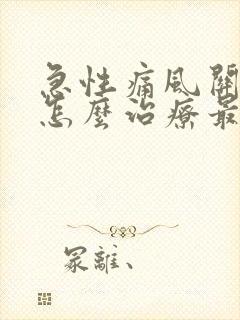 急性痛風關
怎麼治療最
冢離、